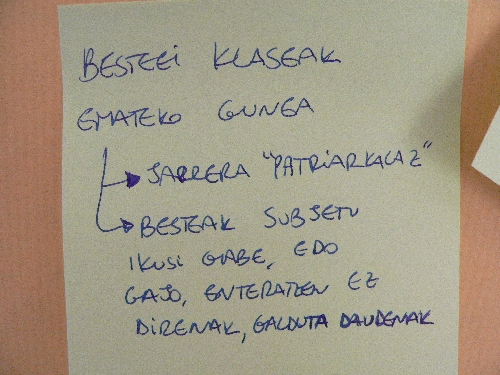 BESTEEI KLASEAK
EMATEKO GUNEA
JARRERA "PATRIARKALAZ"
BESTEAK SUBJETU
IKUSI GABE, EDO
GAJO, ENTERATZEN EZ
DIRENAK, GALDUTA DAUDENAK